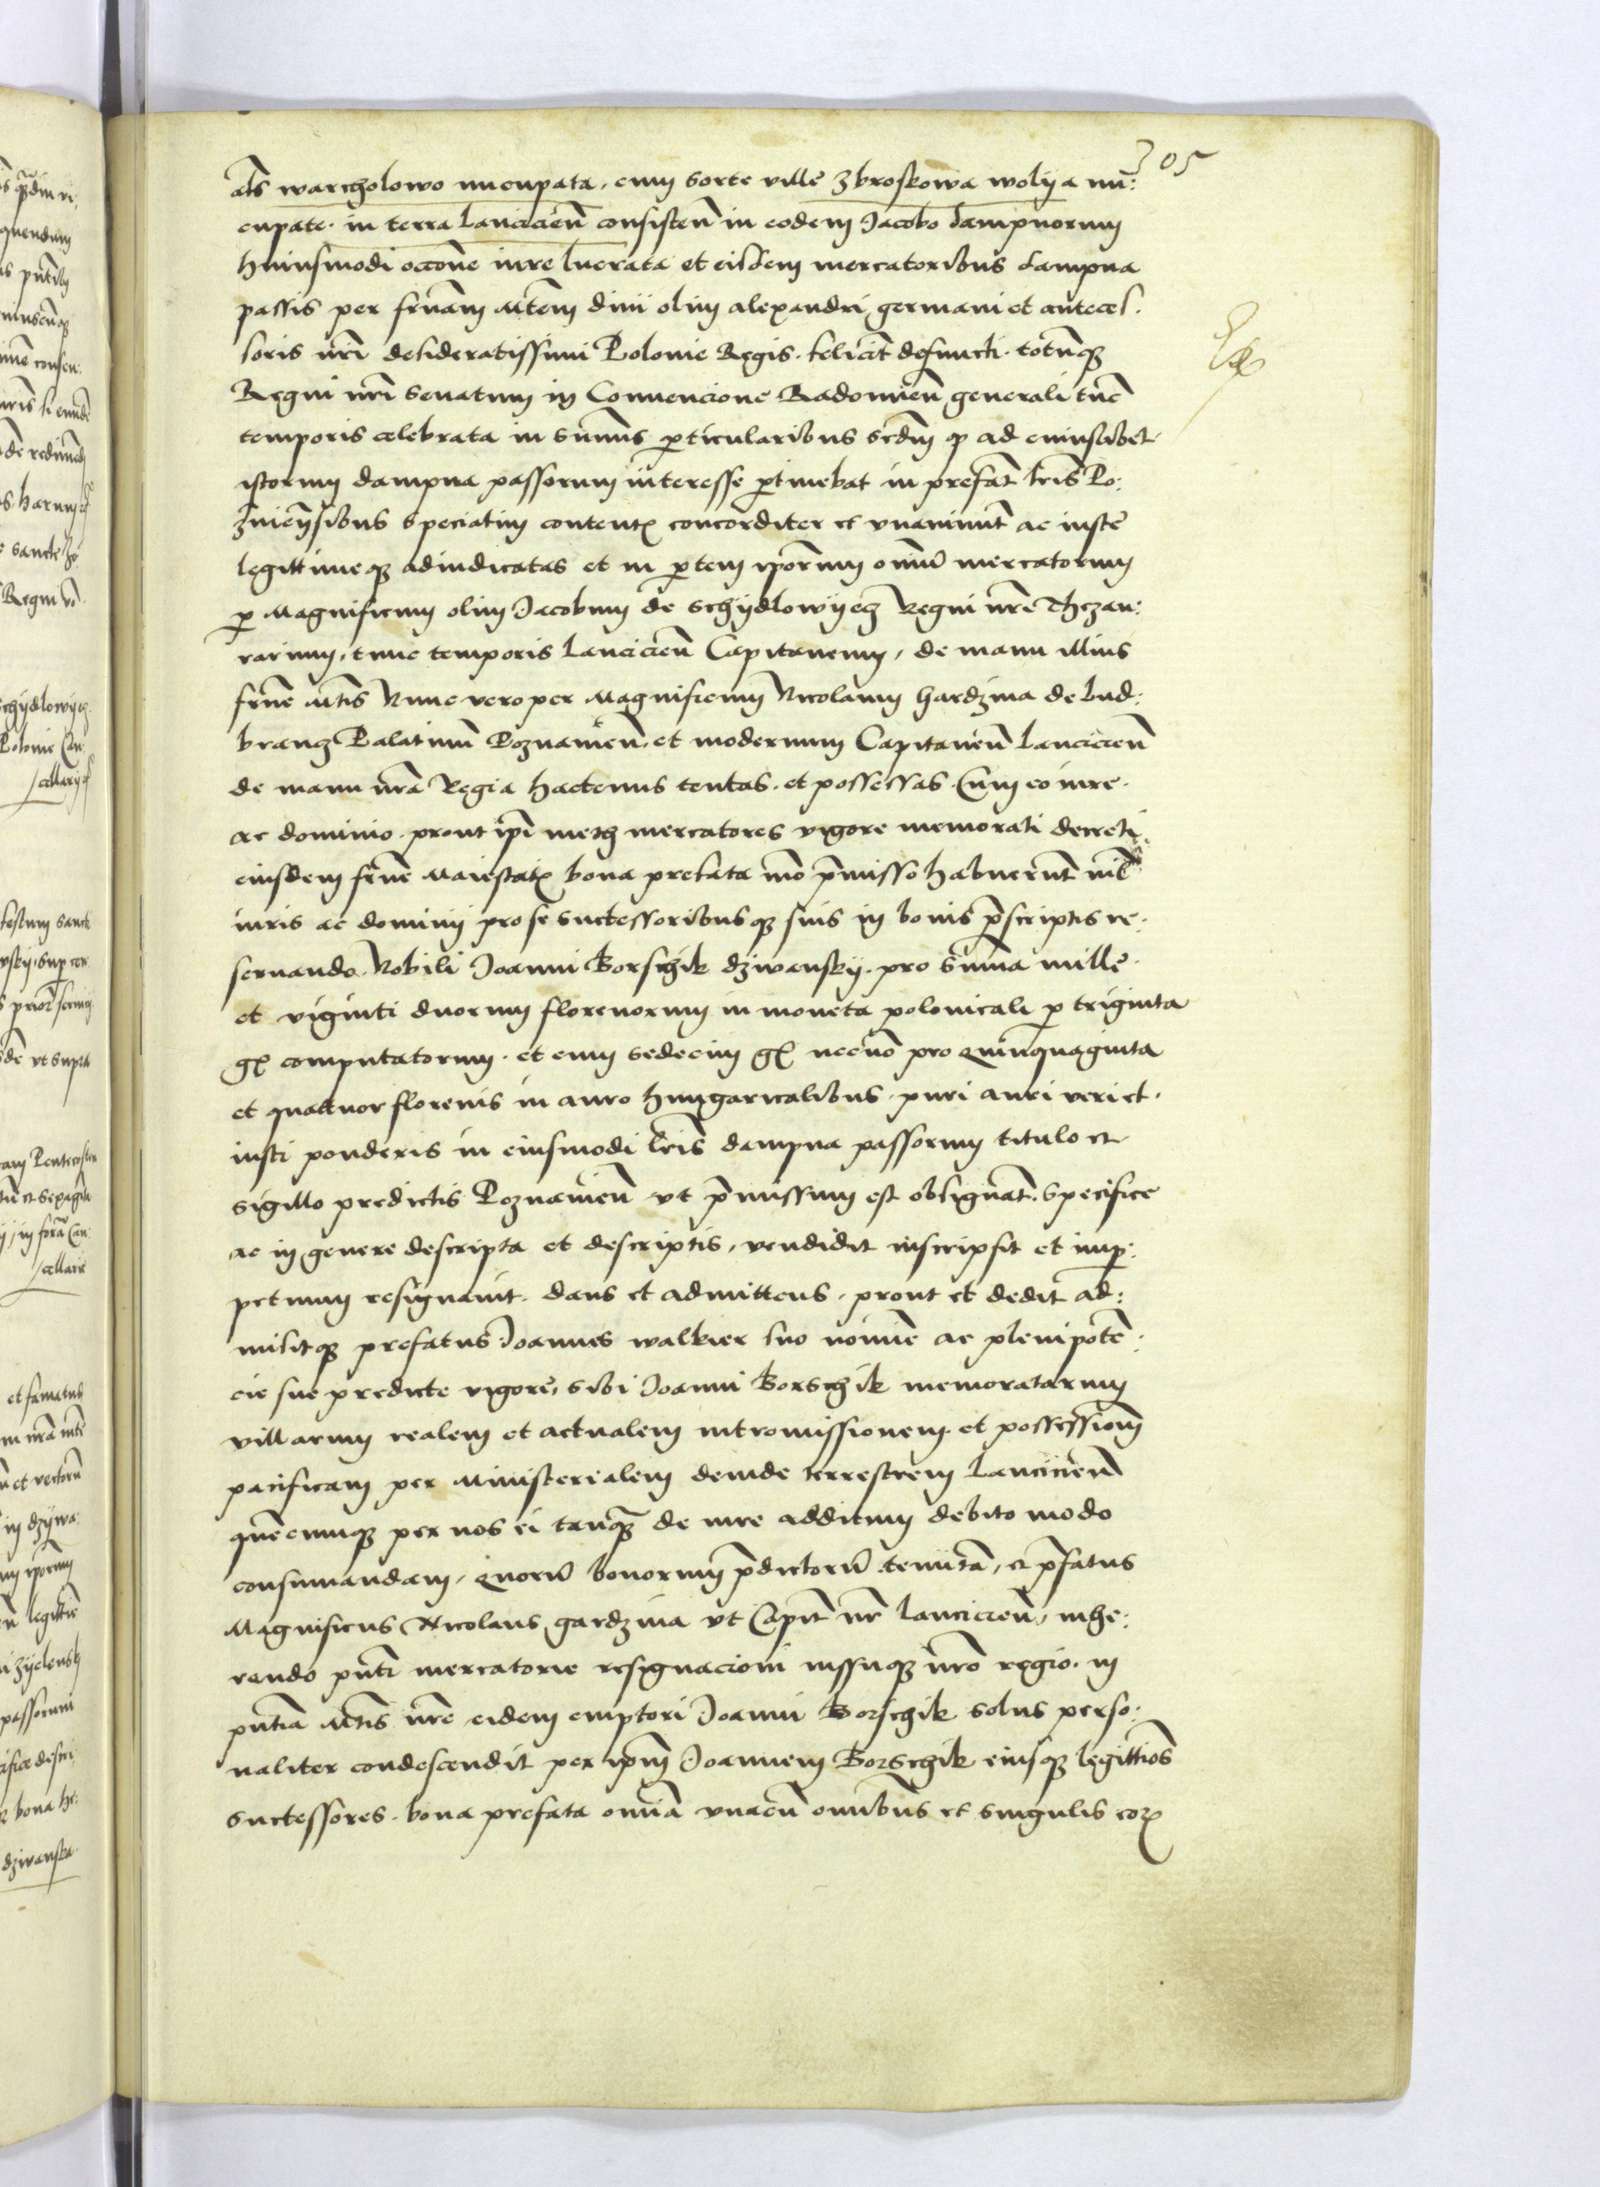 305
als warczolowo nuncupata, cum sorte ville zbroskowa wolya nū:
cupate. in terra Lancicieñ consisteñ in eodem Jacobo dampnorum
huiusmodi occōne iure lucrata et eisdem mercatoribus dampna
passis per sernām Mtem divi olim alexandri germani et anteces.
soris nri desideratissimi Polonie Regis. felicit defuncti. totūq
Regni nri senatum in Convencione Radomieñ generali tūc
temporis celebrata in summis pticularibus scdm q ad cuiuslibet
istorum dampna passorum interesse ptinebat in prefat lris Po:
zniensibus speciatim content concorditer et vnanimit ac iuste
legittimeq adiudicatas et in ptem iporum omiū mercatorum
p Magnificum olim Jacobum de Schydlowyecz Regni nri Thezau:
rarium, tunc temporis Lancicieñ Capitaneum, de manu illius
srne Mtis Nunc vero per Magnificum Nicolaum Gardzina de Lud:
brancz Palatinum Poznanieñ. et modernum Capitaneū Lancicieñ
de manu nra Regia hactenus tentas. et possessas. Cum eo iure.
ac dominio. prout ipi metz mercatores vigore memorati decreti
eiusdem srne Maiestat bona prefata mō pmisso habuerūt nil
iuris ac dominij pro se successoribusq suis in bonis pscriptis re.
seruando. Nobili Joanni Borschik dziwansky. pro summa mille.
et viginti duorum florenorum in moneta polonicali p triginta
g computatorum. et cum sedecim g necnō pro Quinquaginta
et quattuor florenis in auro hungaricalibus. puri auri veri et.
iusti ponderis in eiusmodi lris dampna passorum titulo et
sigillo predictis Poznanieñ vt pmissum est obsignat. specifice
ac in genere descripta et descriptis, vendidit inscripsit et inp:
petuum resignauit. dans et admittens. prout et dedit ad:
misitq prefatus Joannes walkier suo noīne ac plenipotē:
cie sue predicte vigore, sibi Joanni Borschik memoratarum
villarum realem et actualem intromissionem. et possessionē
pacificam per Ministerialem deinde terrestrem Lancicieñ
quēcumq per nos ei tanq de iure additum debito modo
consumandam, Quorū bonorum pdictorū tenutā, et pfatus
Magnificus Nicolaus gardzina vt Capit nr Lancicieñ, inhe:
rendo pnti mercatorie resignacioni iussuq nro regio. in
pntia Mtis nre eidem emptori Joanni Borschik solus perso:
naliter condescendit per ipm Joannem Borschik eiusq legittios
successores. bona prefata omīa vnacū omībus et singulis eor